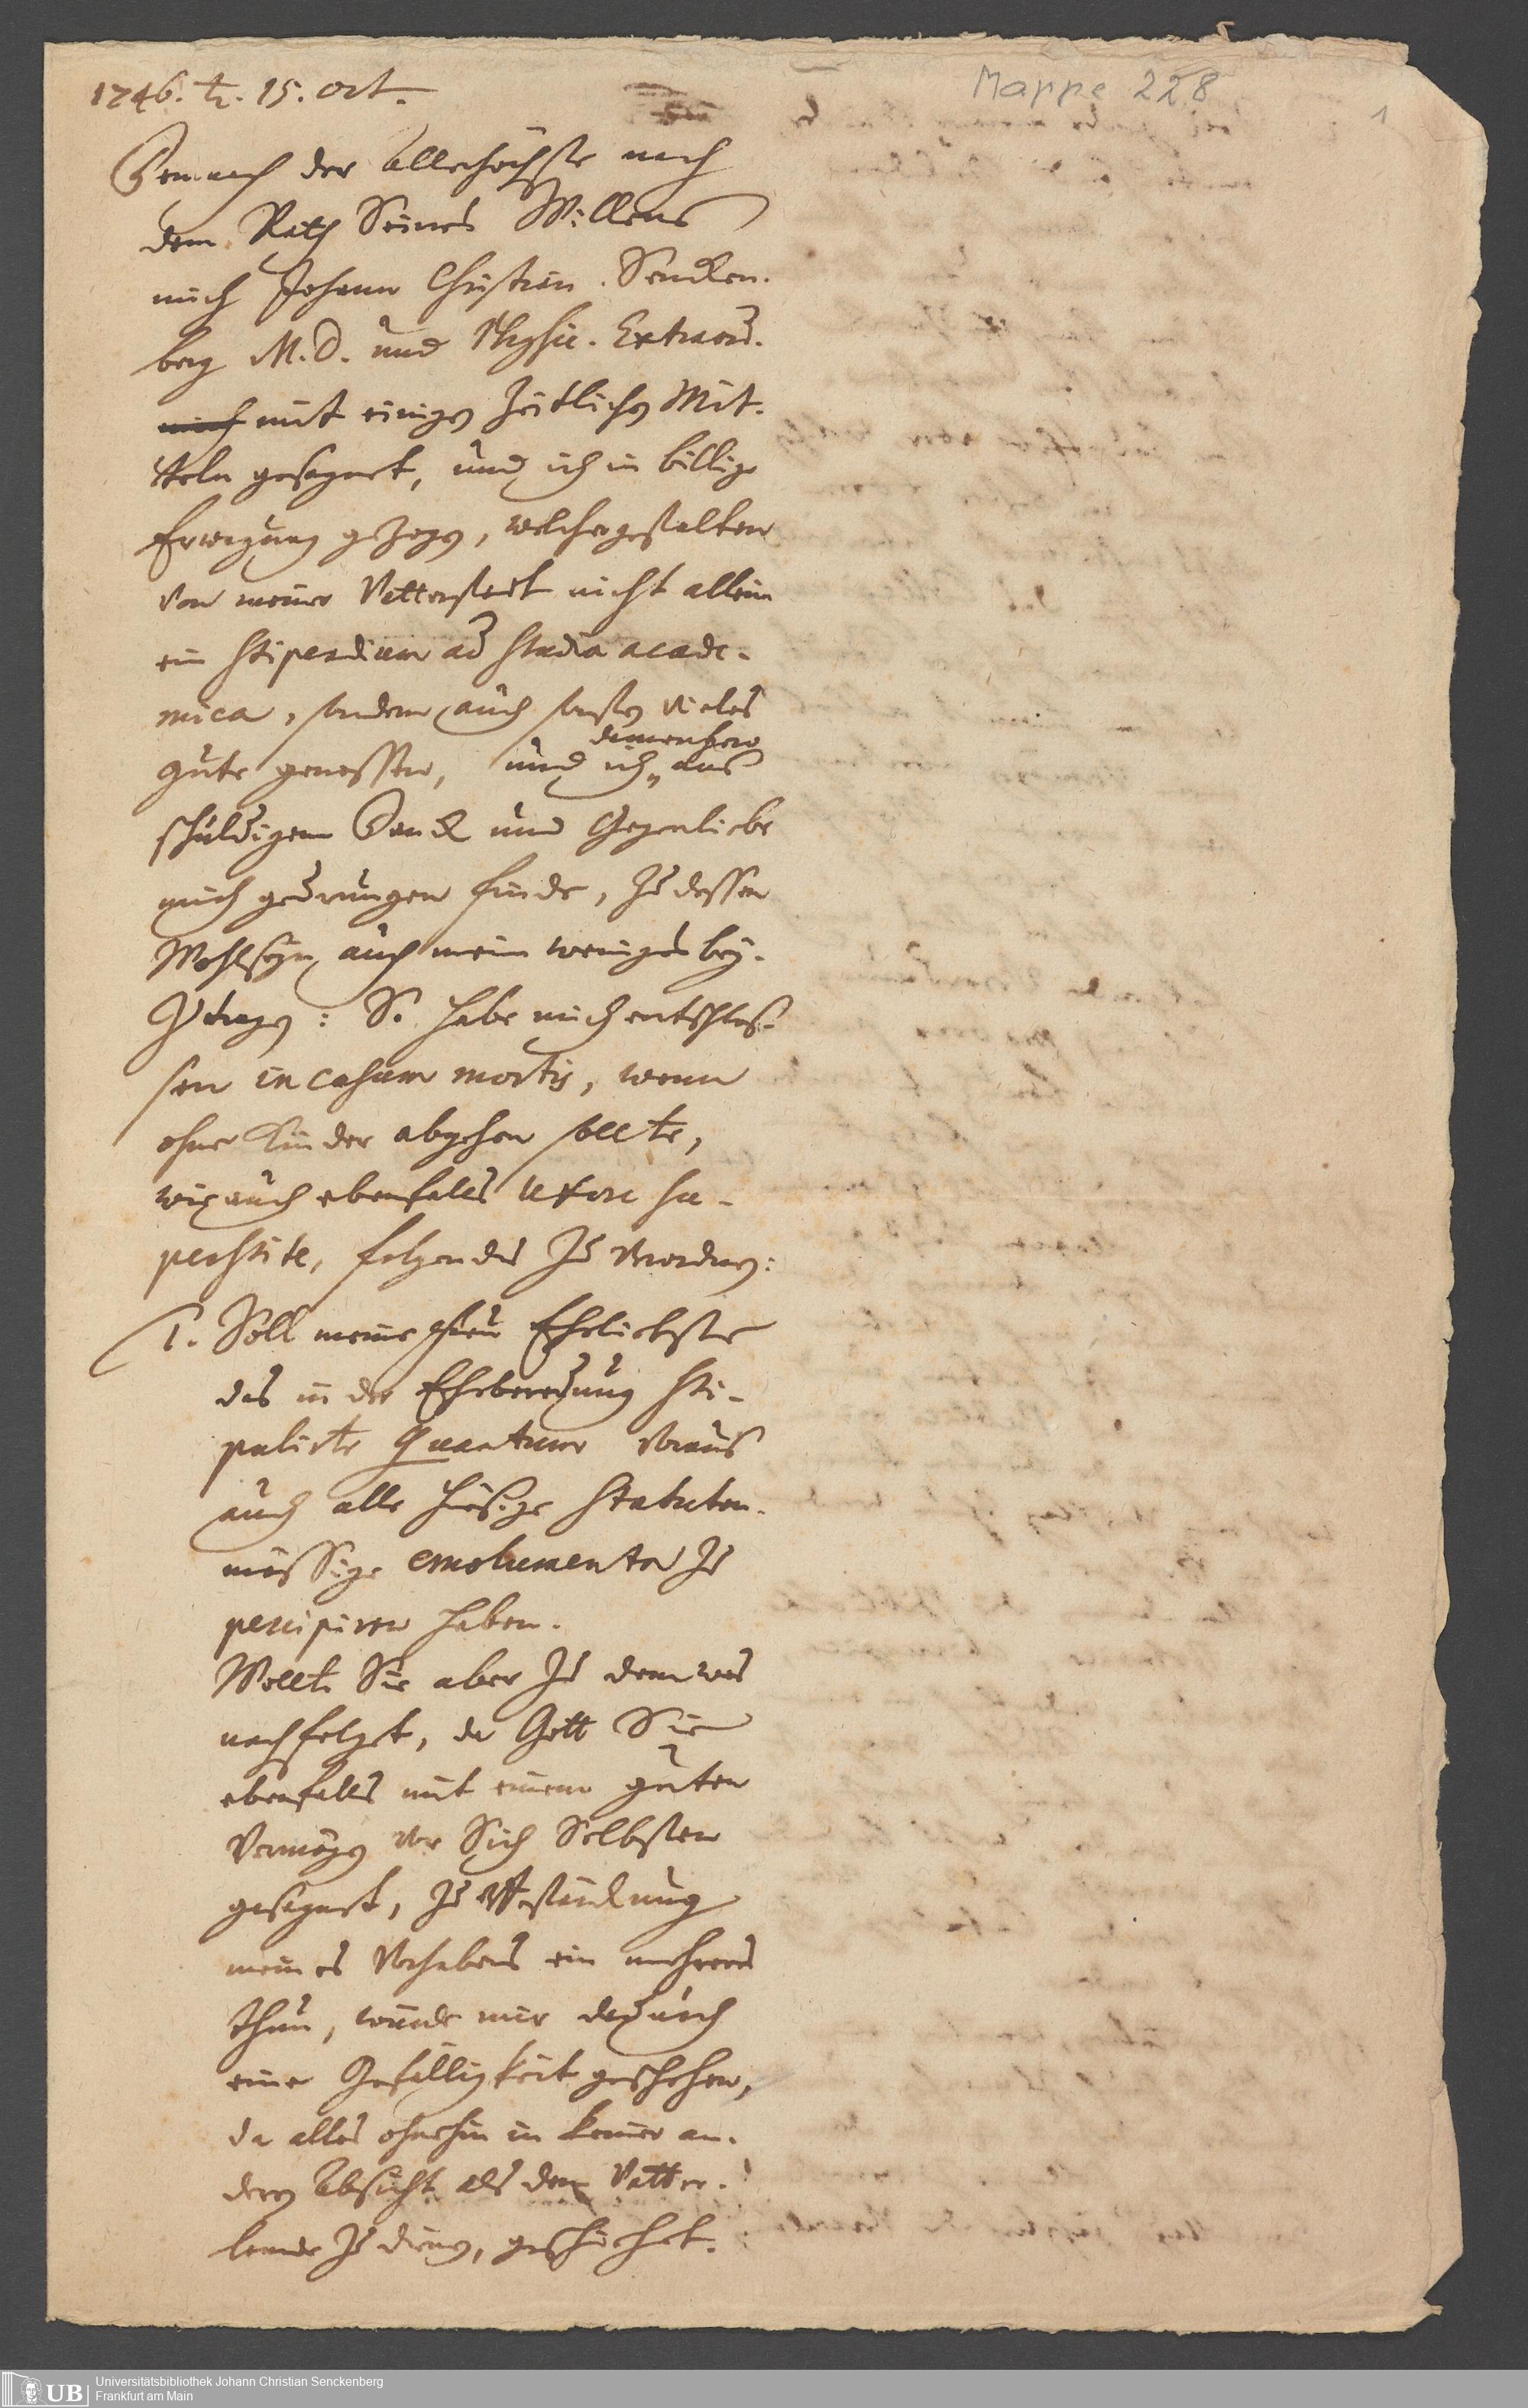 Mappe 228
1
1746. ♄. 15. Oct.
Demnach der Allerhöchste nach
dem Rath Seines Willens
mich Johann Christian Sencken-
berg M. D. und Physic. Extraord.
mit einigen zeitlichen Mit-
teln gesegnet, und ich in billige
Erwegung gezogen, welchergestalten
von meiner Vatterstadt nicht allein
ein Stipendium ad studia acade-
mica, sondern auch sonsten vieles
gute genossen, und ich dannenhero aus
schuldigem Danck und Gegenliebe
mich gedrungen finde, zu dessen
Wohlseyn auch mein weniges bey-
zutragen: So habe mich entschlos-
sen in casum mortis, wenn
ohne Kinder abgehen sollte,
wie auch ebenfalls uxore su-
perstite, folgendes zu verordnen:
1. Soll meine Frau Eheliebste
das in der Eheberedung sti-
pulirte Quantum voraus
auch alle hiesige Statuten-
mässige emolumenta zu
percipiren haben.
Wollte Sie aber zu dem was
nachfolget, da Gott Sie
ebenfalls mit einem guten
Vermögen vor Sich Selbsten
gesegnet, zu
meines Vorhabens ein mehreres
thun, würde mir dadurch
eine Gefälligkeit geschehen,
da alles ohnehin in keiner an-
dern Absicht als dem Vatter-
lande zu dienen, geschiehet.
UB
Universitätsbibliothek Johann Christian Senckenberg
Frankfurt am Main